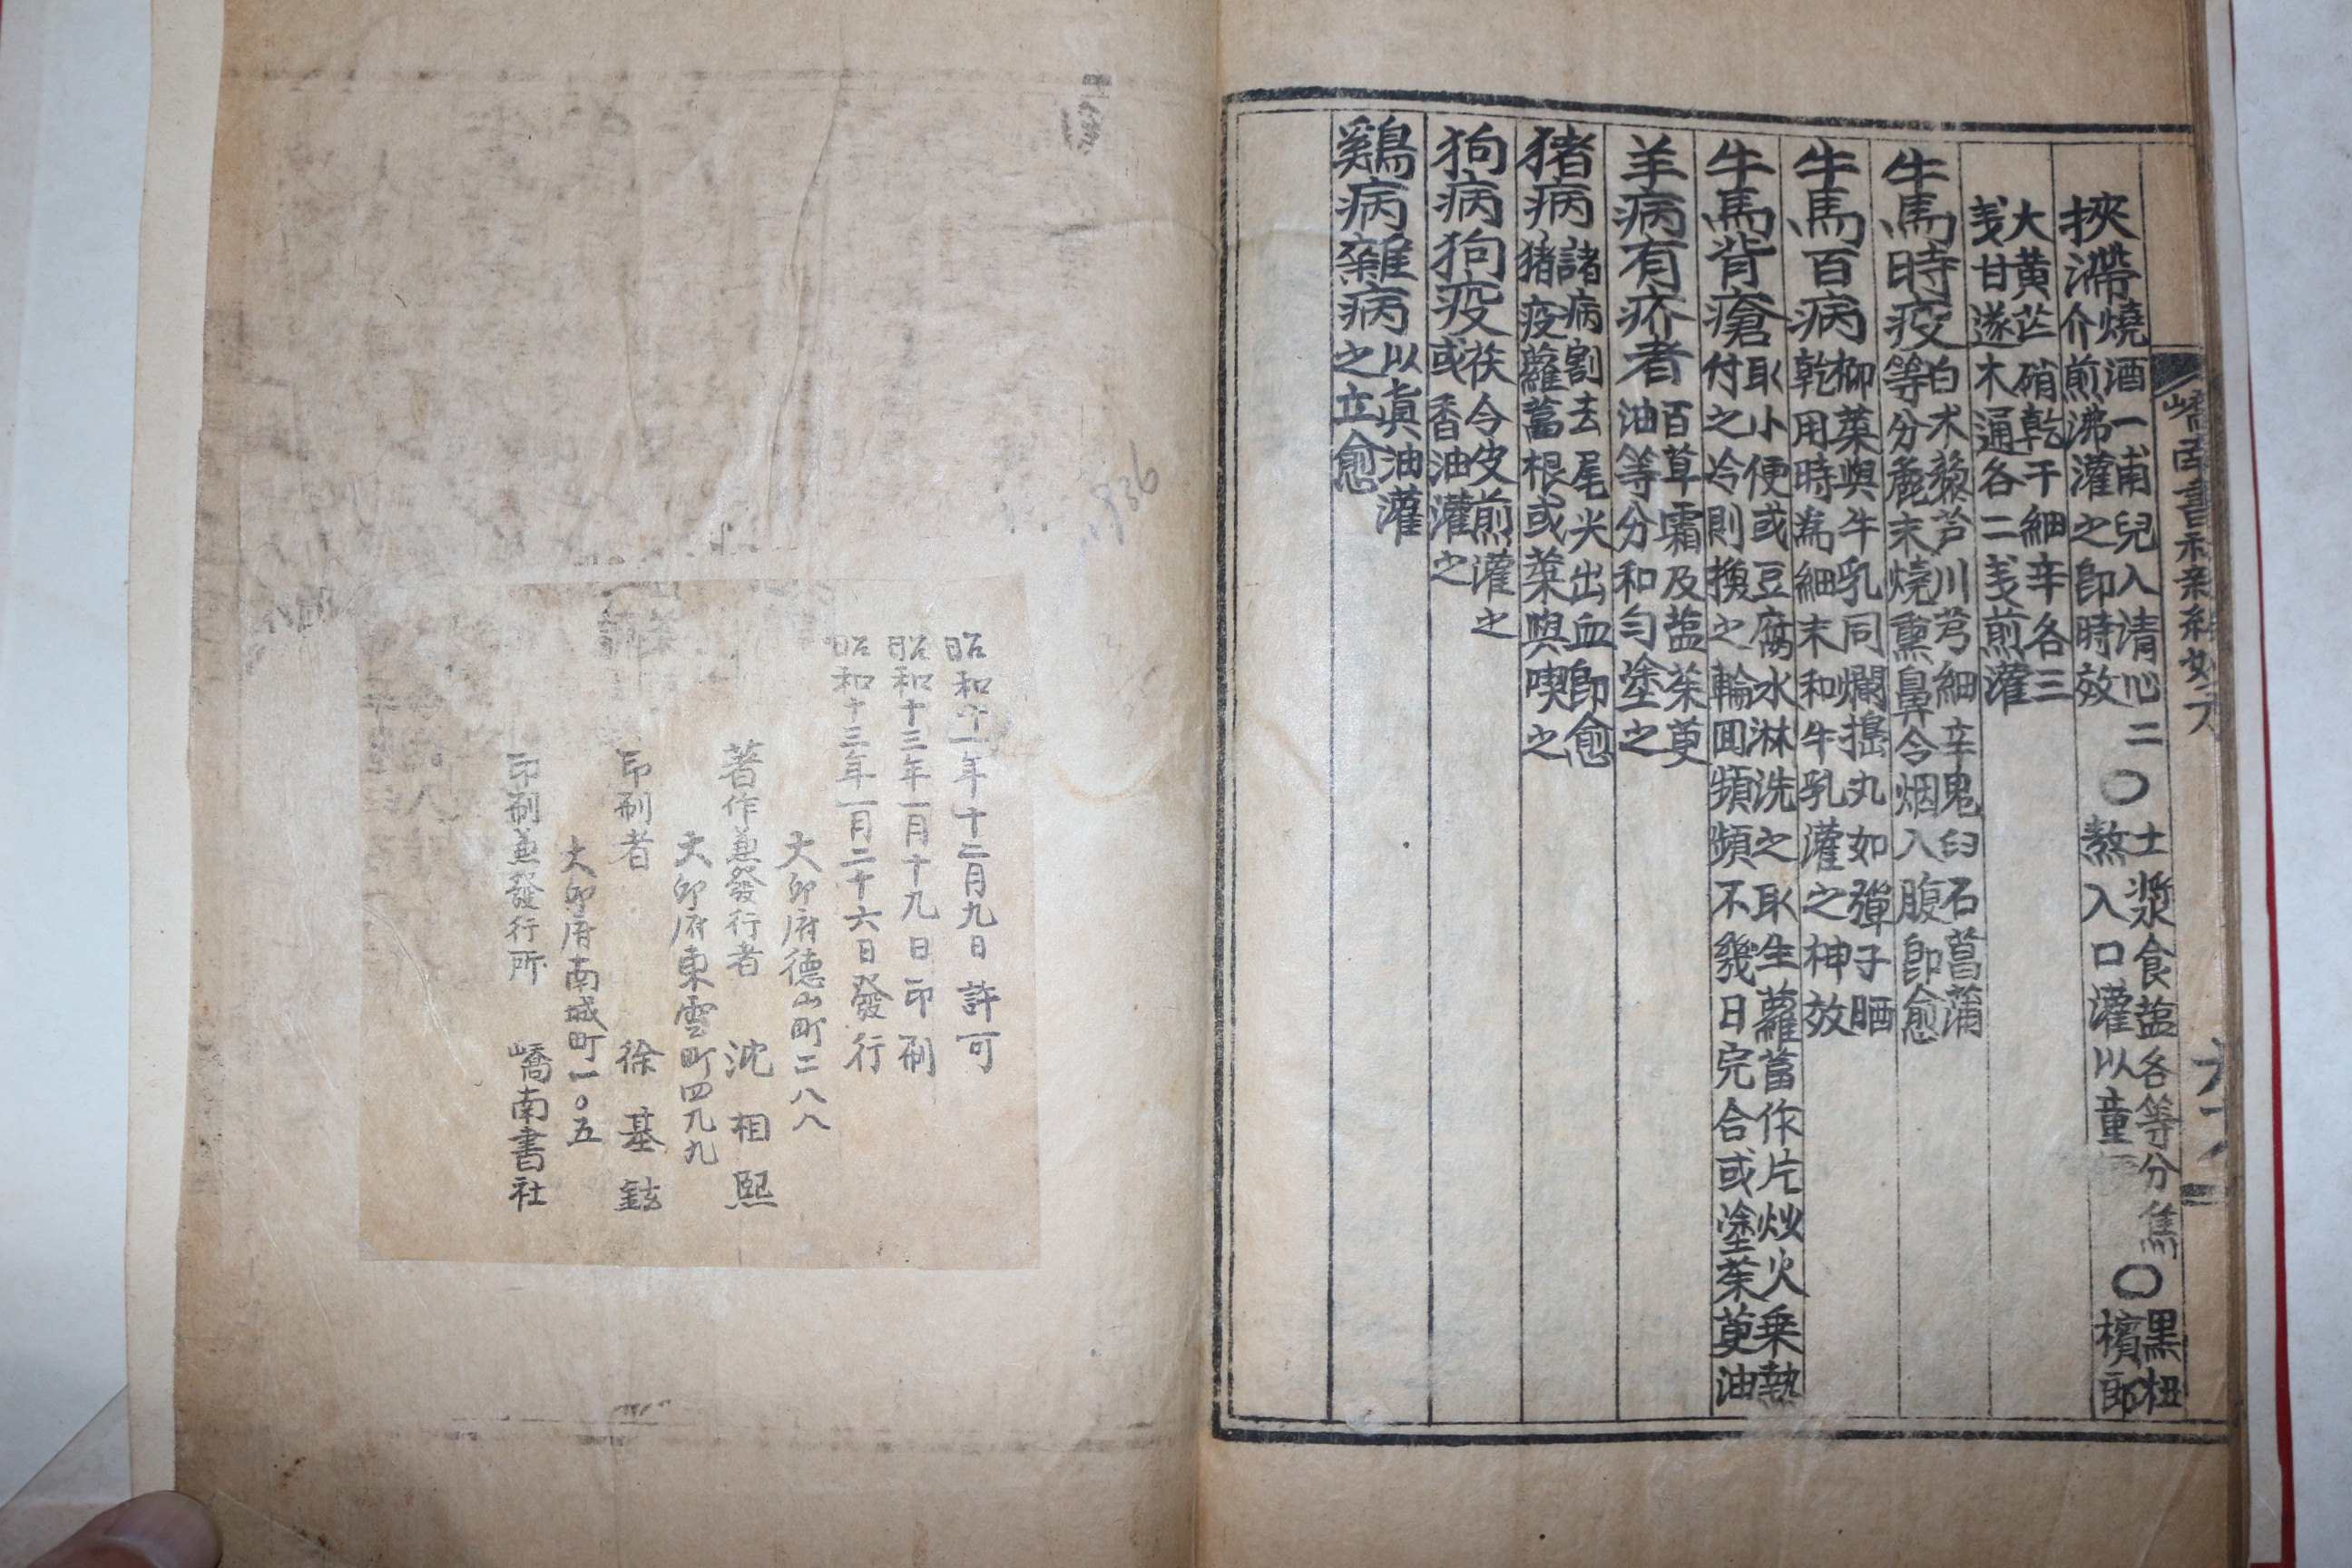 挾滯燒酒一甫兒入清心二〇土漿食塩各等分焦〇黑杻
介煎沸灌之卽時效 熬入口灌以童 檳郎
大黃芒硝乾干細辛各三
戔甘遂木通各二戔煎灌
牛馬時疫白朮藜芦川芎細辛鬼臼石菖蒲
等分麁末燒熏鼻令烟入腹卽愈
牛馬百病柳葉與牛乳同爛搗丸如彈子晒
乾用時爲細末和牛乳灌之神效
牛馬背瘡取小便或豆腐水淋洗之取生蘿蓄作片炒火乗熱
付之冷則換之輪回頻頻不幾日完合或塗茱萸油
羊病有疥者百草霜及塩茱萸
油等分和匀塗之
猪病諸病割去尾尖出血卽愈
猪疫蘿蓄根或葉與喫之
狗病狗疫茯令皮煎灌之
或香油灌之
鷄病雜病以眞油灌
之立愈
嶠南書社
昭和十一年十二月九日許可
昭和十三年一月十九日印刷
昭和十三年一月二十六日發行
大邱府德山町二八八
著作兼發行者 沈相熙
大邱府東雲町四九九
印刷者 徐基鉉
大邱府南城町一〇五
印刷兼發行所 嶠南書社